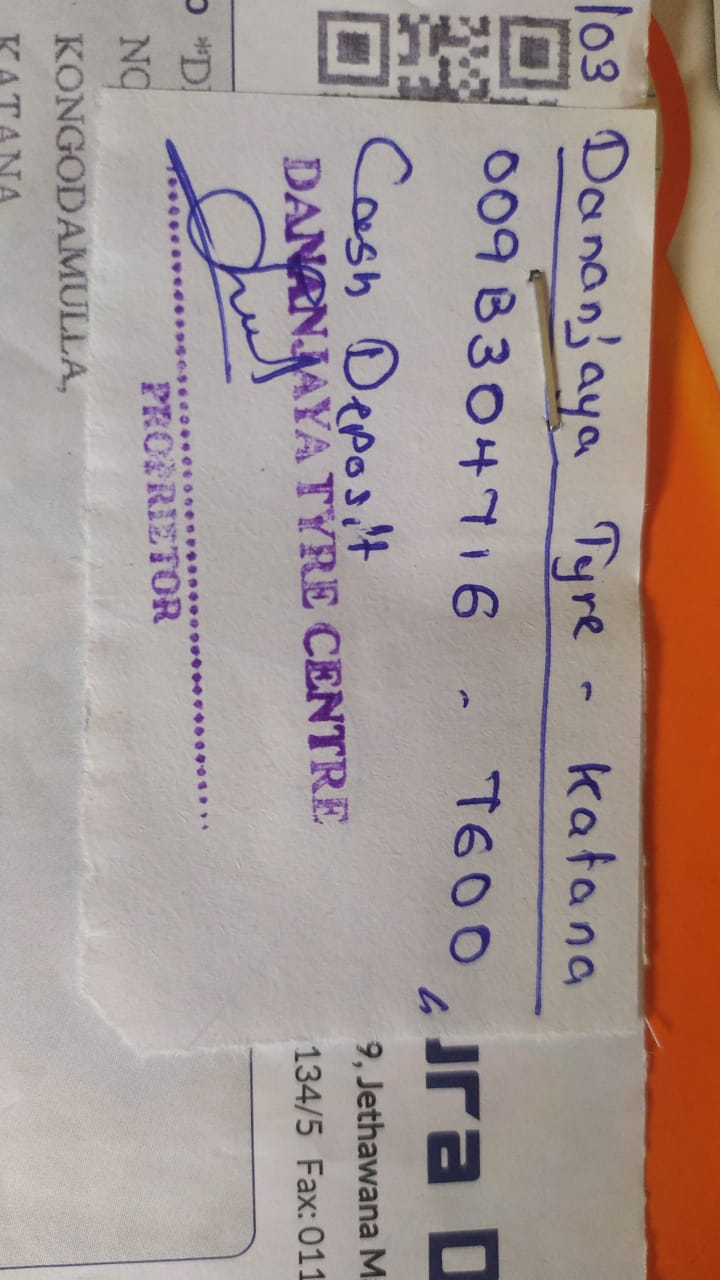 103
Dananjaya Tyre - Katana
009B304716 - 7600
Cash Deposit
DANANJAYA TYRE CENTRE
PROPRIETOR
ura D
9, Jethawana M
134/5 Fax: 011
NO
KONGODAMULLA,
KATANA